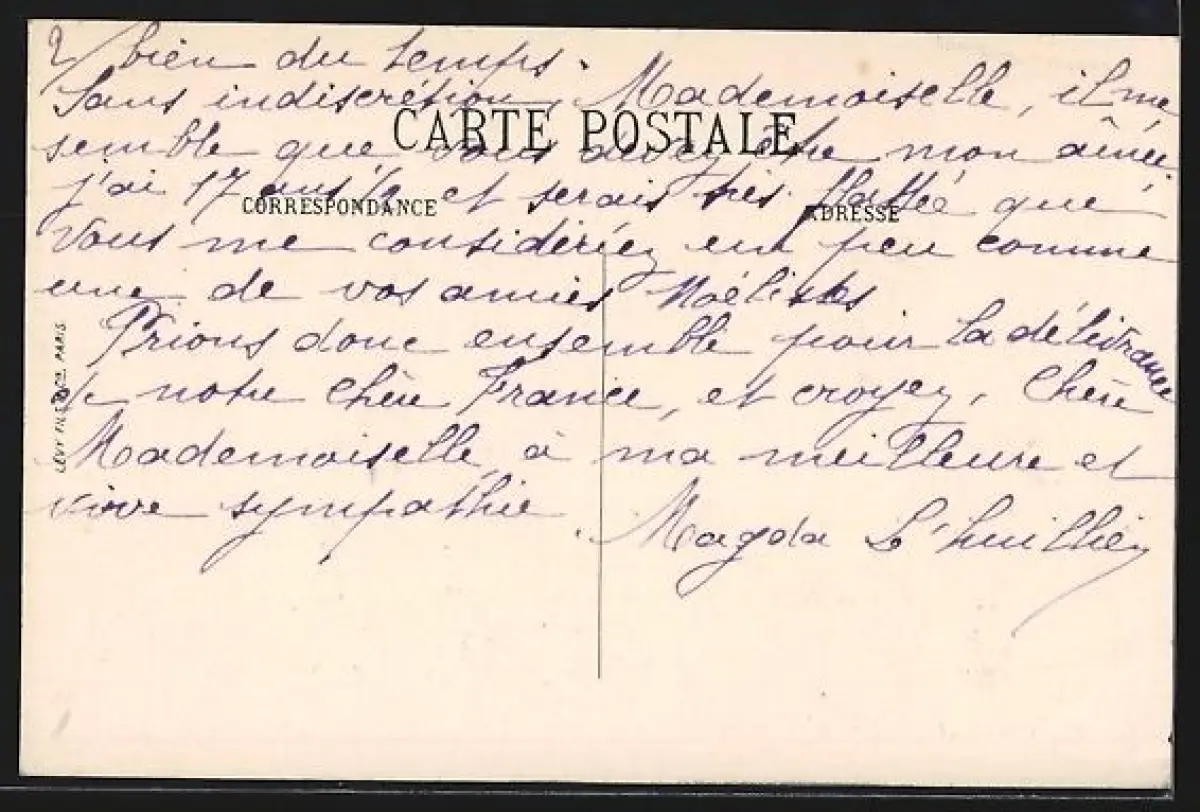 2/ bien du temps.
Sans indiscrétion, Mademoiselle, il me
CARTE POSTALE
semble que vous devez être mon aînée
j'ai 17 ans ½ et serais très flattée que
CORRESPONDANCE
ADRESSE
vous me considériez un peu comme
une de vos amies Noëlistes
Prions donc ensemble pour la délivrance
de notre chère France, et croyez, Chère
Mademoiselle, à ma meilleure et
vive sympathie.
Magda L'huillier
LEVY FILS & Cie PARIS